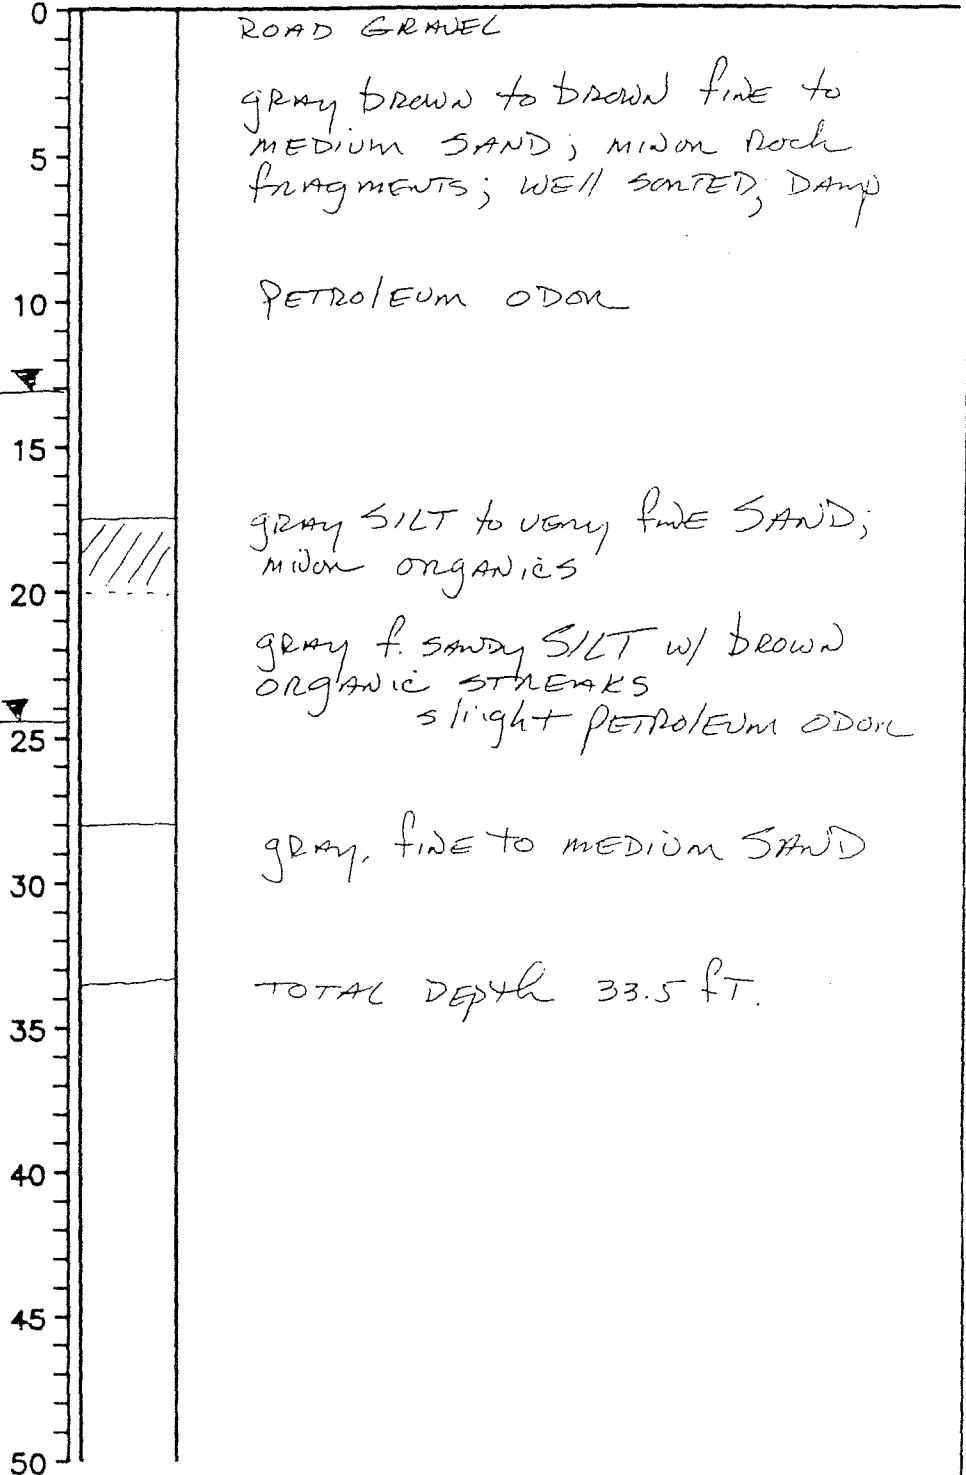 0
ROAD GRAVEL
gray brown to brown fine to
MEDIUM SAND; minor Rock
5
fragments; WELL SORTED; DAmp
PETROLEUM ODOR
10
15
gray SILT to very fine SAND;
minor organics
20
gray f. sandy SILT w/ brown
ORGANIC STREAKS
slight PETROLEUM ODOR
25
gray, fine to MEDIUM SAND
30
TOTAL Depth 33.5 fT.
35
40
45
50